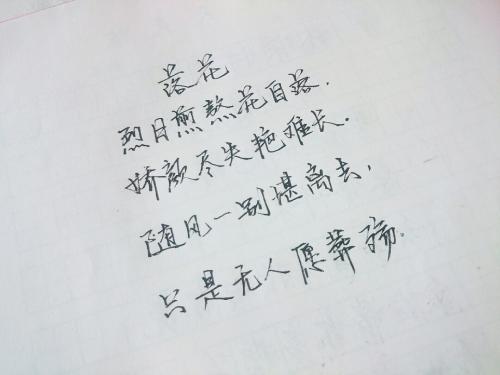 落花
烈日煎熬花自落，
娇颜尽失艳难长．
随风一别堪离去，
只是无人愿葬殇．